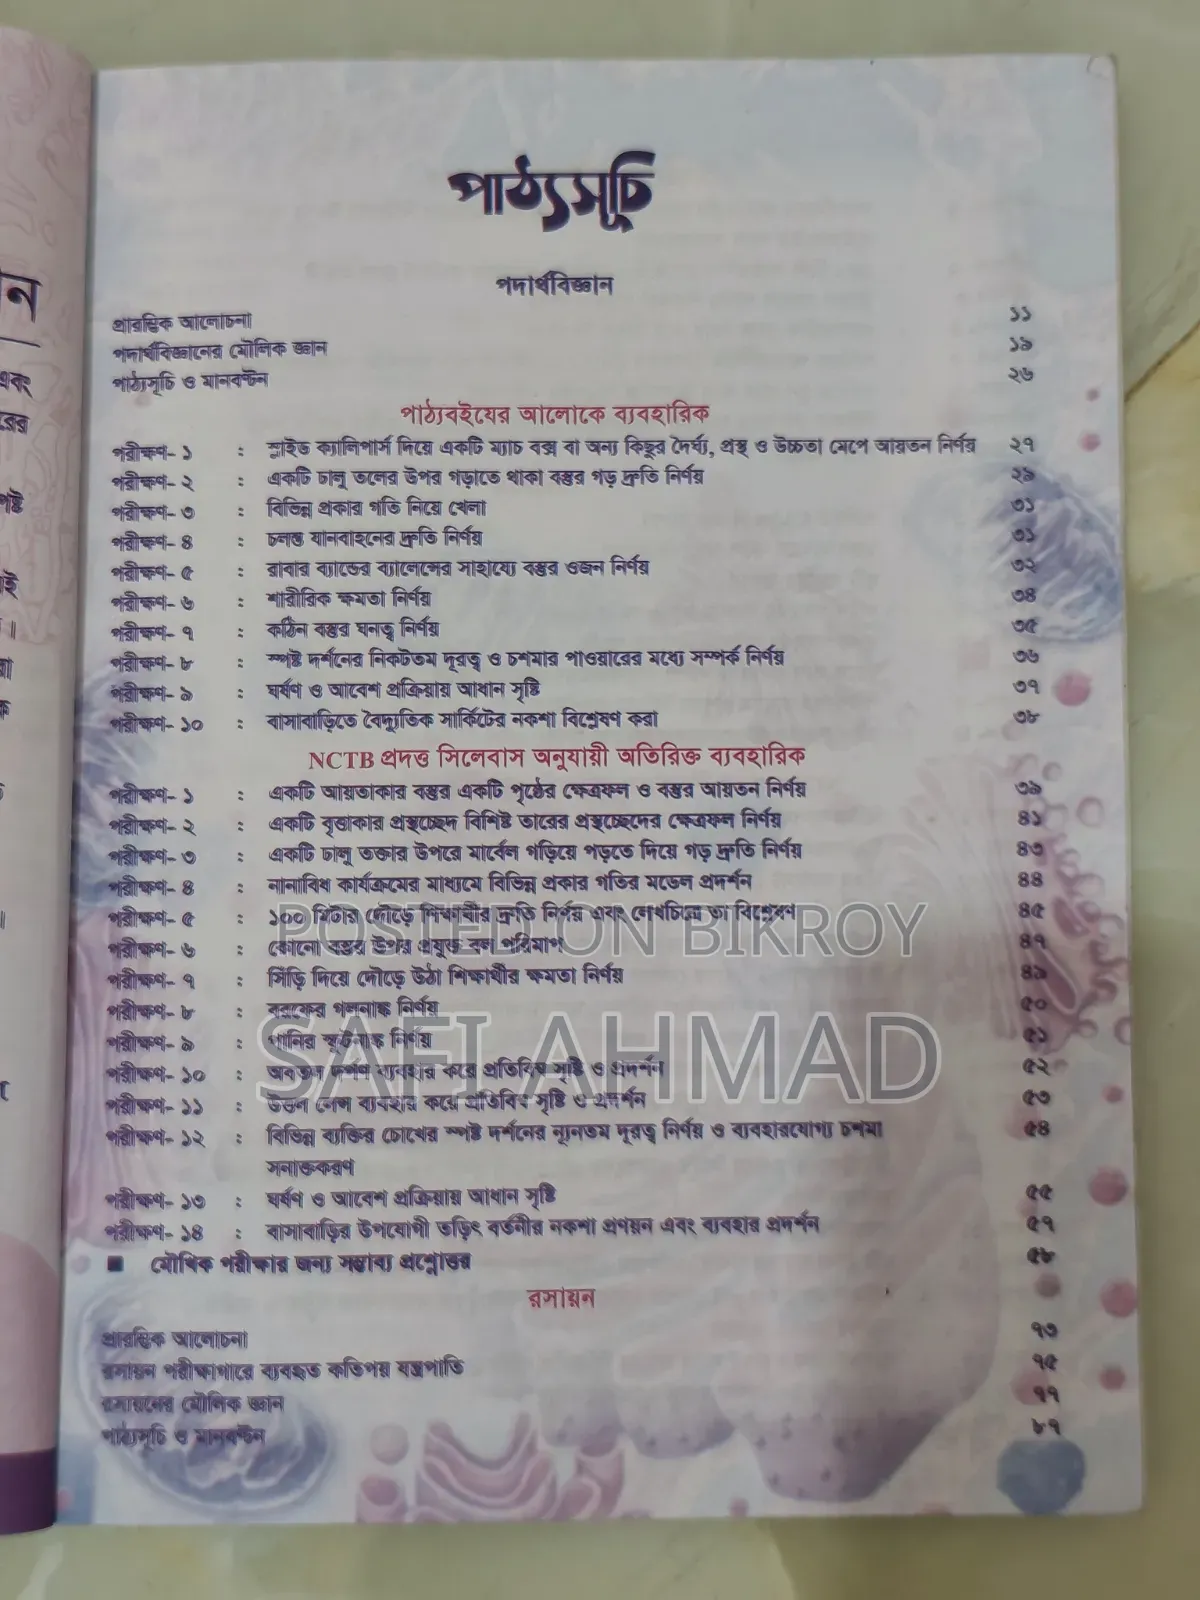 পাঠ্যসূচি
পদার্থবিজ্ঞান
প্রারম্ভিক আলোচনা ১১
পদার্থবিজ্ঞানের মৌলিক জ্ঞান ১৯
পাঠ্যসূচি ও মানবণ্টন ২৬
পাঠ্যবইয়ের আলোকে ব্যবহারিক
পরীক্ষণ- ১ : স্লাইড ক্যালিপার্স দিয়ে একটি ম্যাচ বক্স বা অন্য কিছুর দৈর্ঘ্য, প্রস্থ ও উচ্চতা মেপে আয়তন নির্ণয় ২৭
পরীক্ষণ- ২ : একটি ঢালু তলের উপর গড়াতে থাকা বস্তুর গড় দ্রুতি নির্ণয় ২৯
পরীক্ষণ- ৩ : বিভিন্ন প্রকার গতি নিয়ে খেলা ৩১
পরীক্ষণ- ৪ : চলন্ত যানবাহনের দ্রুতি নির্ণয় ৩১
পরীক্ষণ- ৫ : রাবার ব্যান্ডের ব্যালেন্সের সাহায্যে বস্তুর ওজন নির্ণয় ৩২
পরীক্ষণ- ৬ : শারীরিক ক্ষমতা নির্ণয় ৩৪
পরীক্ষণ- ৭ : কঠিন বস্তুর ঘনত্ব নির্ণয় ৩৫
পরীক্ষণ- ৮ : স্পষ্ট দর্শনের নিকটতম দূরত্ব ও চশমার পাওয়ারের মধ্যে সম্পর্ক নির্ণয় ৩৬
পরীক্ষণ- ৯ : ঘর্ষণ ও আবেশ প্রক্রিয়ায় আধান সৃষ্টি ৩৭
পরীক্ষণ- ১০ : বাসাবাড়িতে বৈদ্যুতিক সার্কিটের নকশা বিশ্লেষণ করা ৩৮
NCTB প্রদত্ত সিলেবাস অনুযায়ী অতিরিক্ত ব্যবহারিক
পরীক্ষণ- ১ : একটি আয়তাকার বস্তুর একটি পৃষ্ঠের ক্ষেত্রফল ও বস্তুর আয়তন নির্ণয় ৩৯
পরীক্ষণ- ২ : একটি বৃত্তাকার প্রস্থচ্ছেদ বিশিষ্ট তারের প্রস্থচ্ছেদের ক্ষেত্রফল নির্ণয় ৪১
পরীক্ষণ- ৩ : একটি ঢালু তক্তার উপরে মার্বেল গড়িয়ে পড়তে দিয়ে গড় দ্রুতি নির্ণয় ৪৩
পরীক্ষণ- ৪ : নানাবিধ কার্যক্রমের মাধ্যমে বিভিন্ন প্রকার গতির মডেল প্রদর্শন ৪৪
পরীক্ষণ- ৫ : ১০০ মিটার দৌড়ে শিক্ষার্থীর দ্রুতি নির্ণয় এবং লেখচিত্রে তা বিশ্লেষণ ৪৫
POSTED ON BIKROY
পরীক্ষণ- ৬ : কোনো বস্তুর উপর প্রযুক্ত বল পরিমাপ ৪৭
পরীক্ষণ- ৭ : সিঁড়ি দিয়ে দৌড়ে উঠা শিক্ষার্থীর ক্ষমতা নির্ণয় ৪৯
পরীক্ষণ- ৮ : বরফের গলনাঙ্ক নির্ণয় ৫০
পরীক্ষণ- ৯ : পানির স্ফুটনাঙ্ক নির্ণয় ৫১
SAFI AHMAD
পরীক্ষণ- ১০ : অবতল দর্পণ ব্যবহার করে প্রতিবিম্ব সৃষ্টি ও প্রদর্শন ৫২
পরীক্ষণ- ১১ : উত্তল লেন্স ব্যবহার করে প্রতিবিম্ব সৃষ্টি ও প্রদর্শন ৫৩
পরীক্ষণ- ১২ : বিভিন্ন ব্যক্তির চোখের স্পষ্ট দর্শনের ন্যূনতম দূরত্ব নির্ণয় ও ব্যবহারযোগ্য চশমা ৫৪
সনাক্তকরণ
পরীক্ষণ- ১৩ : ঘর্ষণ ও আবেশ প্রক্রিয়ায় আধান সৃষ্টি ৫৫
পরীক্ষণ- ১৪ : বাসাবাড়ির উপযোগী তড়িৎ বর্তনীর নকশা প্রণয়ন এবং ব্যবহার প্রদর্শন ৫৭
■ মৌখিক পরীক্ষার জন্য সম্ভাব্য প্রশ্নোত্তর ৫৮
রসায়ন
প্রারম্ভিক আলোচনা ৭৩
রসায়ন পরীক্ষাগারে ব্যবহৃত কতিপয় যন্ত্রপাতি ৭৫
রসায়নের মৌলিক জ্ঞান ৭৭
পাঠ্যসূচি ও মানবণ্টন ৮৭